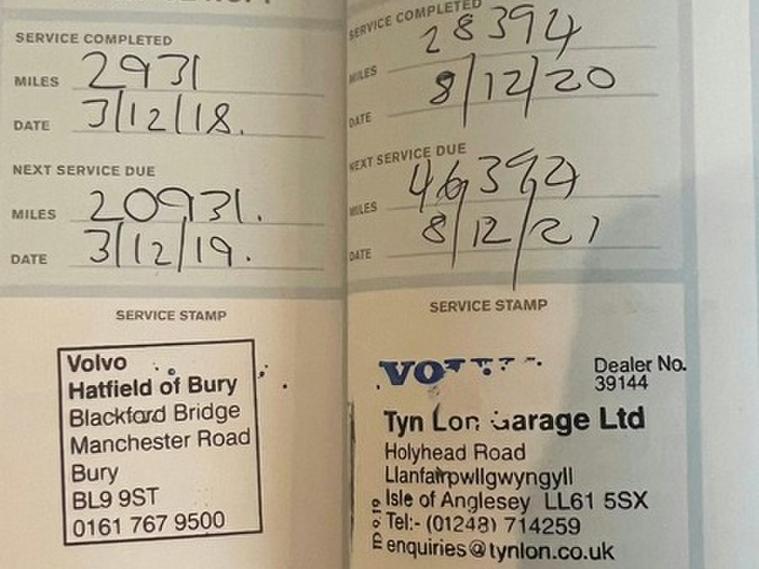 SERVICE COMPLETED
MILES 2931
DATE 3/12/18.
NEXT SERVICE DUE
MILES 20931.
DATE 3/12/19.
SERVICE STAMP
Volvo
Hatfield of Bury
Blackford Bridge
Manchester Road
Bury
BL9 9ST
0161 767 9500
SERVICE COMPLETED
MILES 28394
DATE 8/12/20
NEXT SERVICE DUE
MILES 46394
DATE 8/12/21
SERVICE STAMP
Dealer No.
39144
Tyn Lon Garage Ltd
Holyhead Road
Llanfairpwllgwyngyll
Isle of Anglesey LL61 5SX
Tel:- (01248) 714259
enquiries@tynlon.co.uk